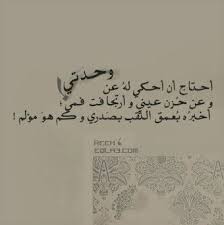 وحدتي!
أحتاج أن أحكي لهُ عن
و عن حُزن عينيّ و أرتجافت فمي ؛
أخبرُه بُعمق الثقب بصدري و كم هو مؤلم !
REEM
EQLA3.COM